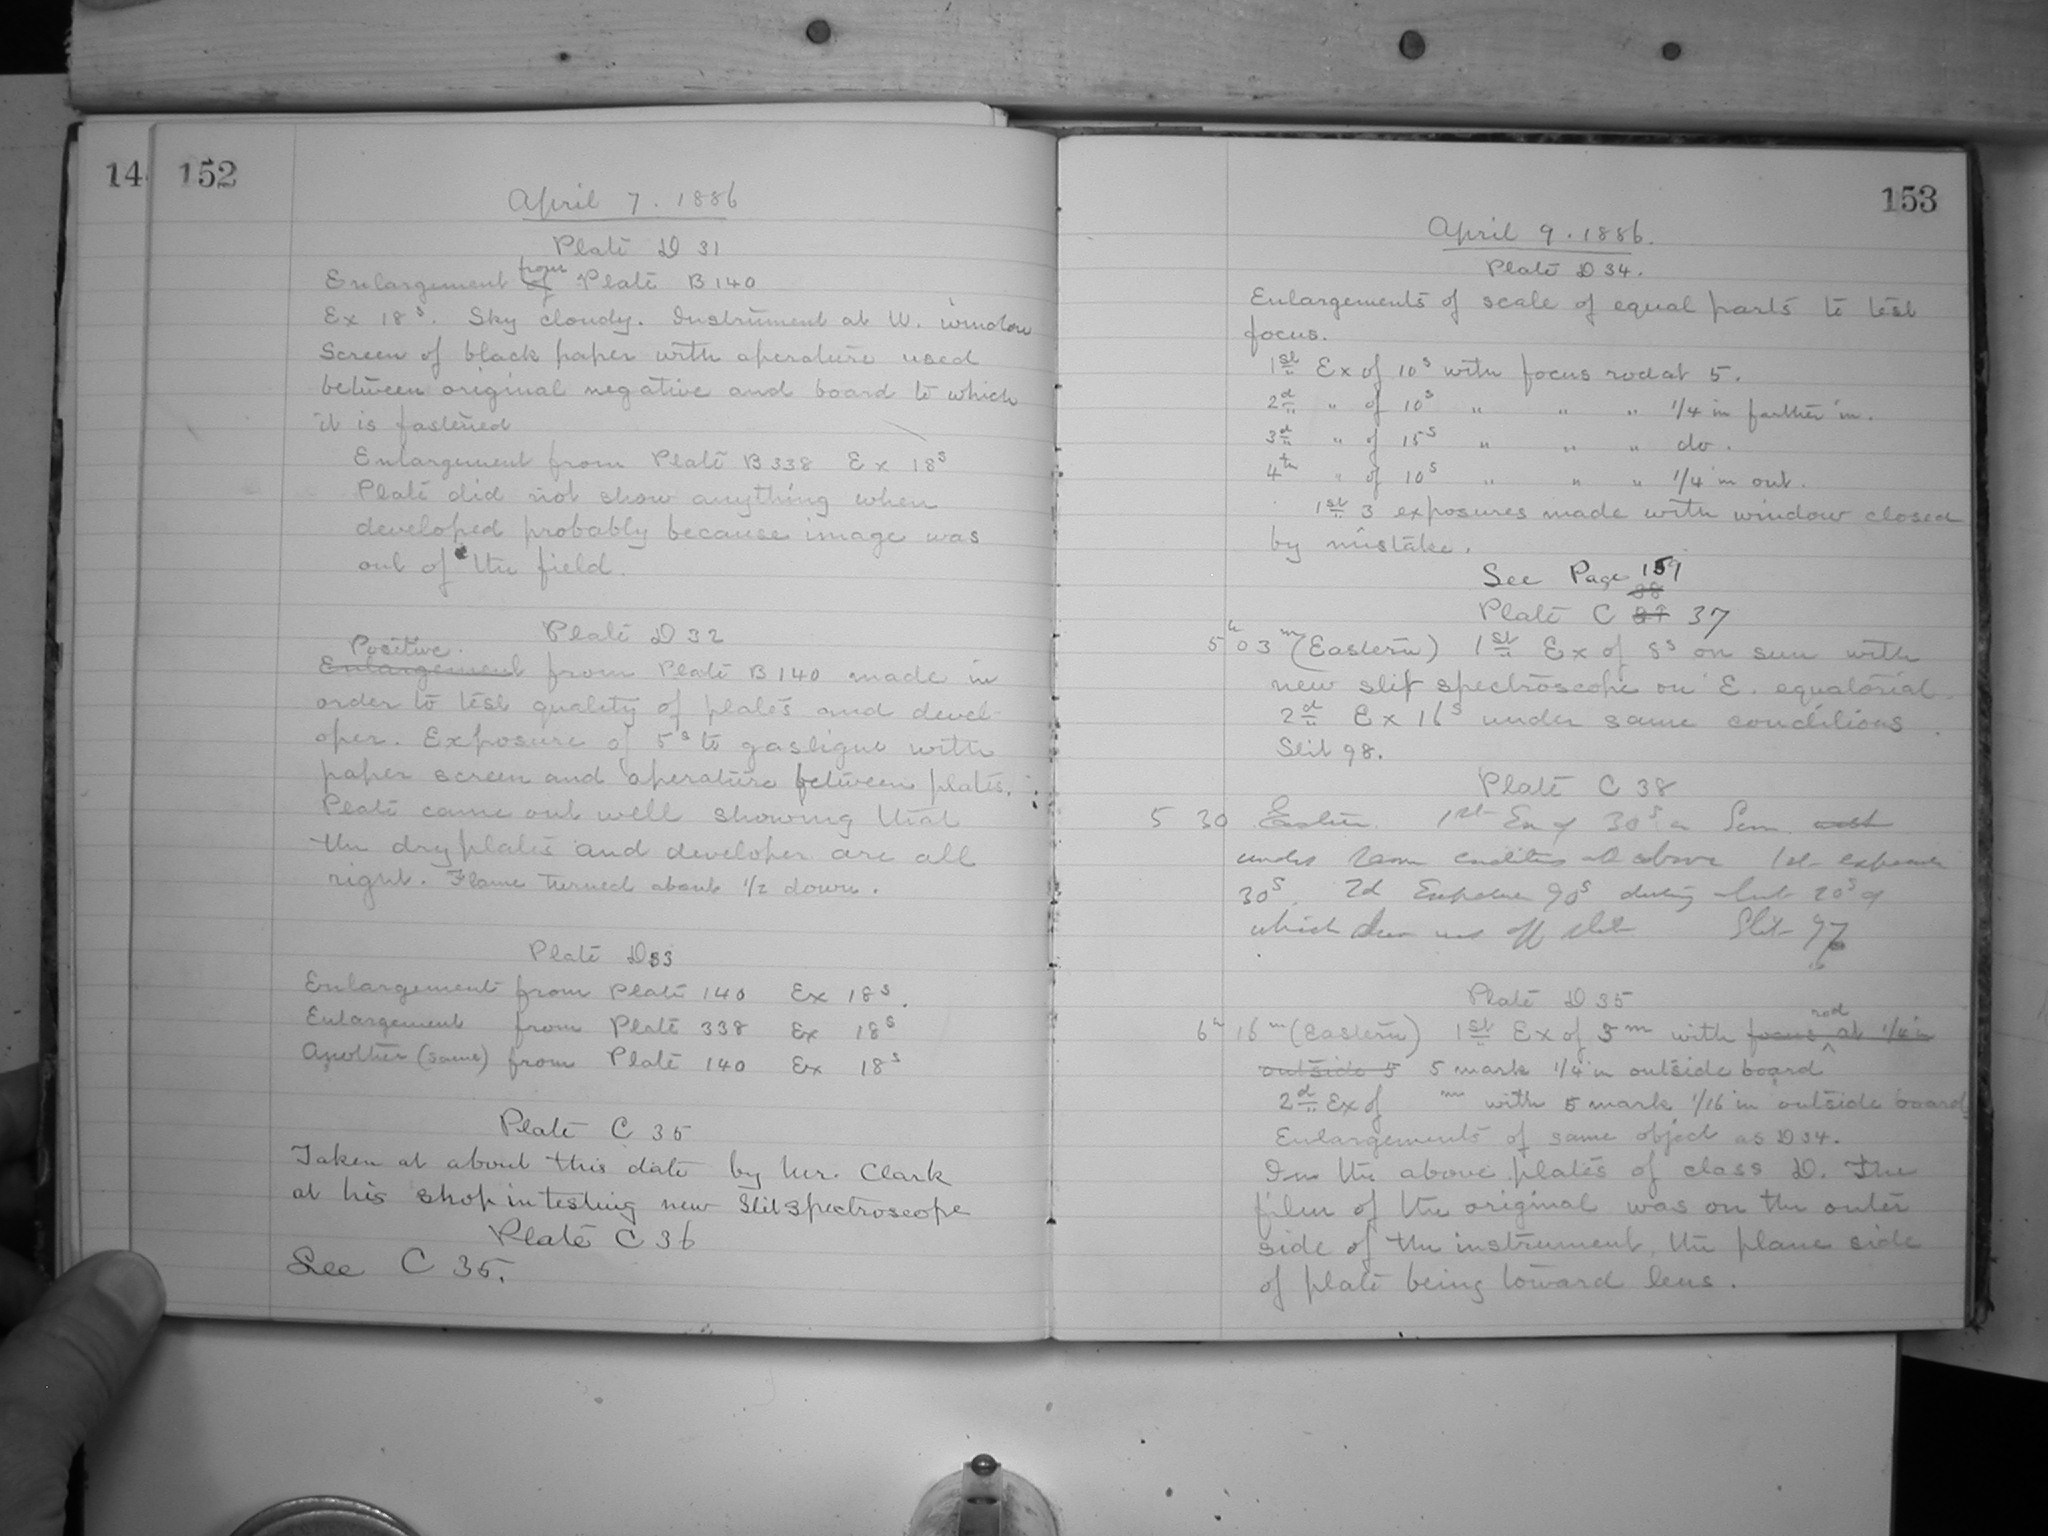 14
152
April 7. 1886
Plate D 31
from
Enlargement of Plate B 140
Ex 18s. Sky cloudy. Instrument at W. window
Screen of black paper with aperature used
between original negative and board to which
it is fastened
Enlargement from Plate B 338 Ex 18s
Plate did not show anything when
developed probably because image was
out of the field.
Plate D 32
Positive
Enlargement from Plate B 140 made in
order to test quality of plates and devel-
oper. Exposure of 5s to gaslight with
paper screen and aperature between plates.
Plate came out well showing that
the dryplates and developer are all
right. Flame turned about 1/2 down.
Plate D33
Enlargement from Plate 140 Ex 18s.
Enlargement from Plate 338 Ex 18s
Another (same) from Plate 140 Ex 18s
Plate C 35
Taken at about this date by Mr. Clark
at his shop in testing new Slit spectroscope
Plate C 36
See C 35.
153
April 9. 1886.
Plate D 34.
Enlargements of scale of equal parts to test
focus.
1st Ex of 10s with focus rod at 5.
2d " of 10s " " " 1/4 in farther in.
3d " of 15s " " " do.
4th " of 10s " " " 1/4 in out.
1st 3 exposures made with window closed
by mistake.
See Page 159
38
Plate C 37
5h 03m (Eastern) 1st Ex of 8s on sun with
new slit spectroscope on E. equatorial.
2d Ex 16s under same conditions.
Slit 98.
Plate C 38
5 30 Eastern 1st Ex of 30s on Sun with
under same conditions as above 1st exposure
30s. 2d Exposure 90s during last 20s of
which Sun was off slit Slit 97
Plate D 35
rod
6h 15m (Eastern) 1st Ex of 5m with focus at 1/4 in
outside 5 5 mark 1/4 in outside board
2d Ex of m with 5 mark 1/16 in outside board
Enlargements of same object as D 34.
In the above plates of class D. The
film of the original was on the outer
side of the instrument, the plane side
of plate being toward lens.